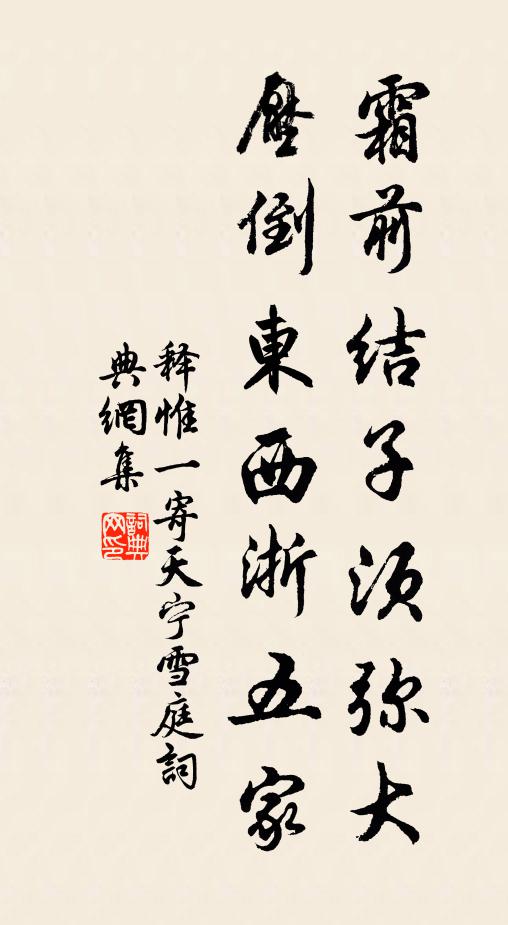 霜前结子须弥大
壓倒東西浙五家
释惟一寄天宁雪庭詞
典網集
詞典
网印